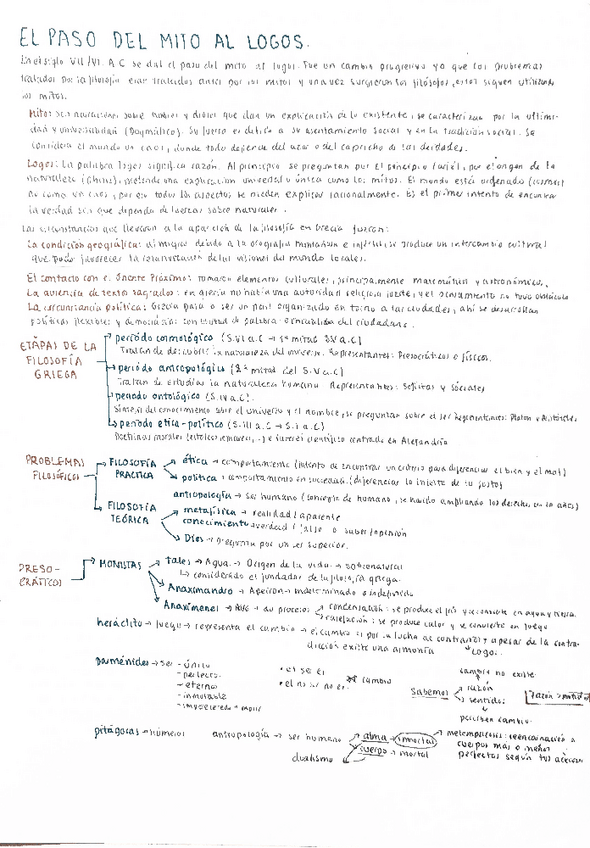 EL PASO DEL MITO AL LOGOS.
En el siglo VII/VI A.C se da el paso del mito al logos. Fue un cambio progresivo ya que los problemas
tratados por la filosofía eran tratados antes por los mitos y una vez surgieron los filósofos, estos siguen utilizando
los mitos.
Mito: son narraciones sobre y dioses que dan un explicación de lo existente, se caracterizan por la
y universalidad (Dogmático). Su fuerza es debido a su asentamiento social y en la tradición social. Se
considera el mundo un caos, donde todo depende del azar o del capricho de las deidades.
Logos: La palabra logos significa razón. Al principio se preguntan por el principio (arjé), por el origen de la
naturaleza (physis), pretende una explicación universal y única como los mitos. El mundo está ordenado (cosmos)
no como un caos, por eso todos los aspectos se pueden explicar racionalmente. Es el primer intento de encontrar
la verdad sin que dependa de fuerzas sobrenaturales.
Las circunstancias que llevaron a la aparición de la filosofía en Grecia fueron:
La condición geográfica: al migrar debido a la orografía montañosa e se produce un intercambio cultural
que pudo favorecer la de las visiones del mundo locales.
El contacto con el Oriente Próximo: tomaron elementos culturales, principalmente matemáticos y astronómicos.
La ausencia de textos sagrados: en grecia no había una autoridad religiosa fuerte, y el pensamiento no tuvo obstáculo
La circunstancia política: Grecia pasó a ser un país organizado en torno a las ciudades, ahí se desarrollan
políticas flexibles y democráticas con libertad de palabra e igualdad del ciudadano.
ETAPAS DE LA FILOSOFÍA GRIEGA
período cosmológico (S.VI a.C → 1ª mitad S.V a.C)
Tratan de descubrir la naturaleza del universo. Representantes: Presocráticos o físicos.
período antropológico (2ª mitad del S.V a.C)
Tratan de estudiar la naturaleza humana Representantes: Sofistas y Sócrates
periodo ontológico (S.IV a.C)
Síntesis del conocimiento sobre el universo y el hombre, se preguntan sobre el ser Representantes: Platón y Aristóteles
período ético-político (S.III a.C → S.I a.C)
Doctrinas morales y científico centrado en Alejandría
PROBLEMAS FILOSÓFICOS
FILOSOFÍA PRÁCTICA
ética → comportamiento (intento de encontrar un criterio para diferenciar el bien y el mal)
política → comportamiento en sociedad (diferenciar lo injusto de lo justo)
antropología → ser humano (concepto de humano, se ha ido ampliando los derechos en los años)
FILOSOFÍA TEÓRICA
metafísica → realidad / aparente
conocimiento → verdad / falso o subjetivo opinión
Dios → pregunta por un ser superior.
PRESOCRÁTICOS
MONISTAS
Tales → Agua → Origen de la vida → sobrenatural
↳ considerado el fundador de la filosofía griega
Anaximandro → Apeiron → indeterminado o indefinido
Anaxímenes → Aire → dos procesos
condensación: se produce el frío y se convierte en agua y tierra
rarefacción: se produce calor y se convierte en fuego
heráclito → fuego → representa el cambio → el cambio es por la lucha de contrarios y a pesar de la contradicción existe una armonía
Logos
Parménides → Ser
- único
- perfecto
- eterno
- inmutable
• el ser es
• el no ser no es
cambio
Sabemos
cambio no existe
razón
sentidos
perciben cambio
razón > sentidos
pitágoras → números
antropología → ser humano
dualismo
alma → inmortal
cuerpo → mortal
metempsicosis: reencarnación a cuerpos más o menos perfectos según tus acciones